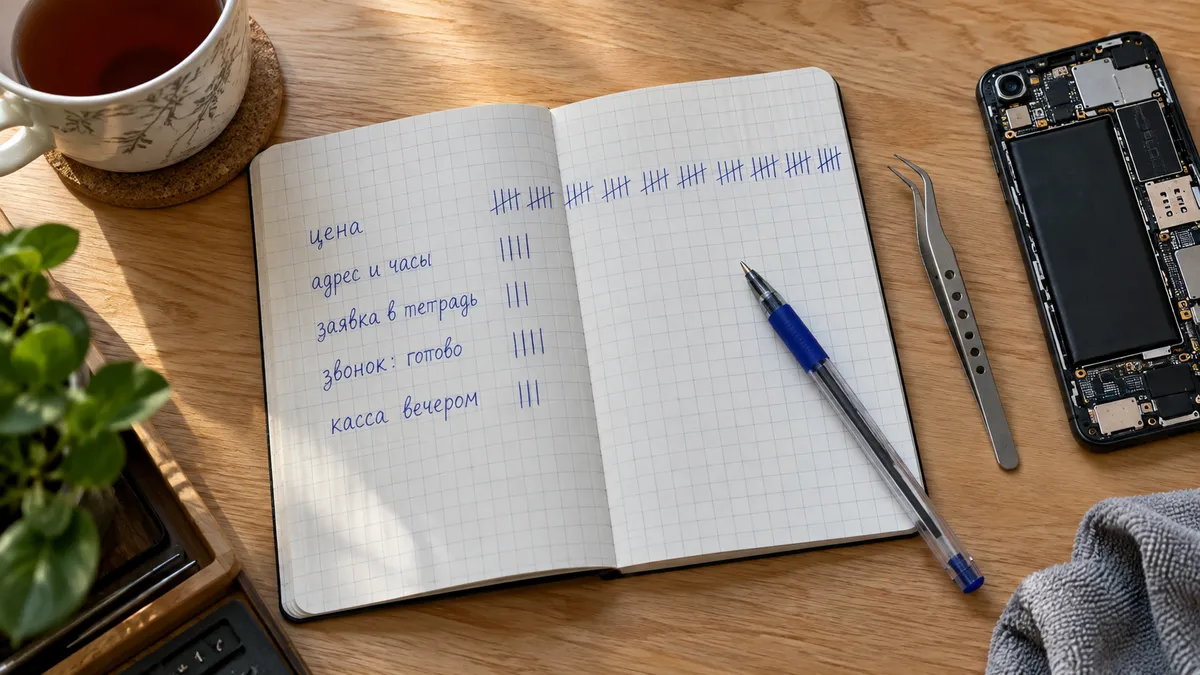 цена
адрес и часы
заявка в тетрадь
звонок: готово
касса вечером